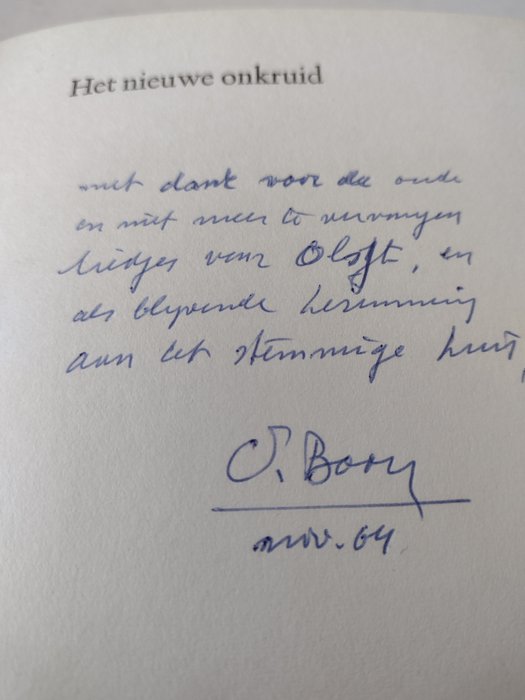 Het nieuwe onkruid
met dank voor de oude
en niet meer te vervangen
liedjes van Olst, en
als blijvende herinnering
aan het stemmige huis,
J. Booy
nov. 64.